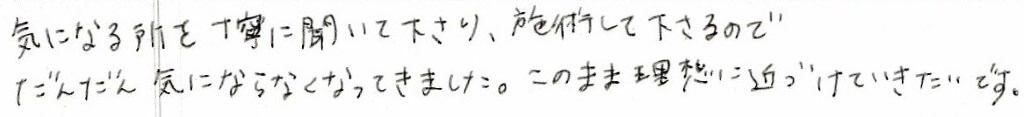 気になる所を丁寧に聞いて下さり、施術して下さるので
だんだん気にならなくなってきました。このまま理想に近づけていきたいです。